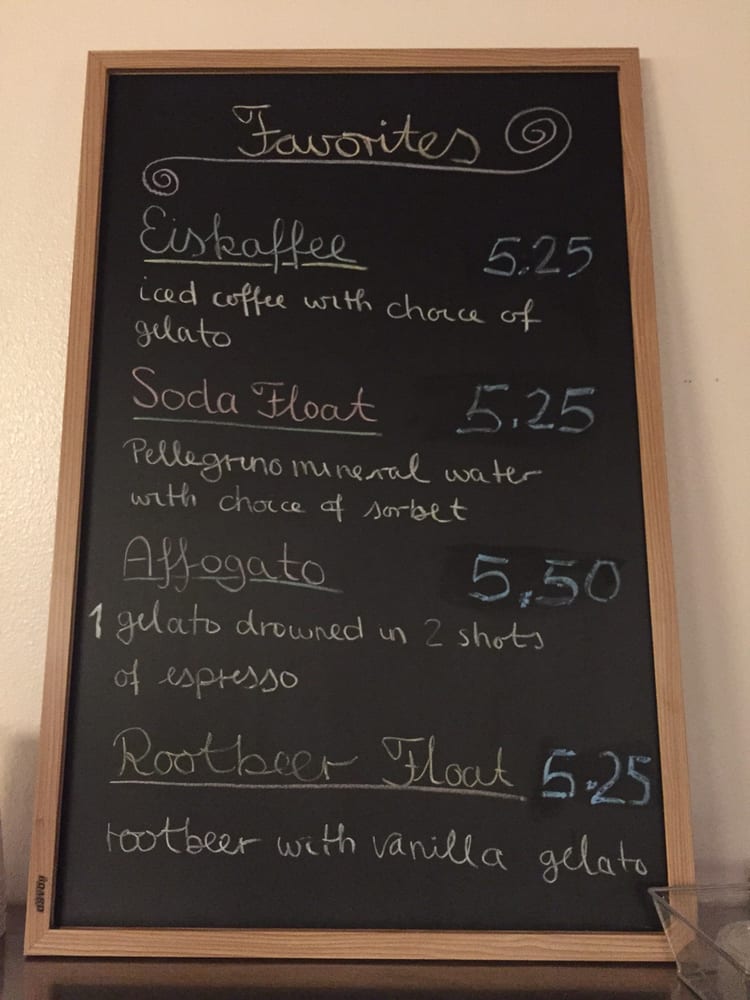 Favorites
Eiskaffee 5.25
iced coffee with choice of
gelato
Soda Float 5.25
Pellegrino mineral water
with choice of sorbet
Affogato 5.50
1 gelato drowned in 2 shots
of espresso
Rootbeer Float 5.25
rootbeer with vanilla gelato